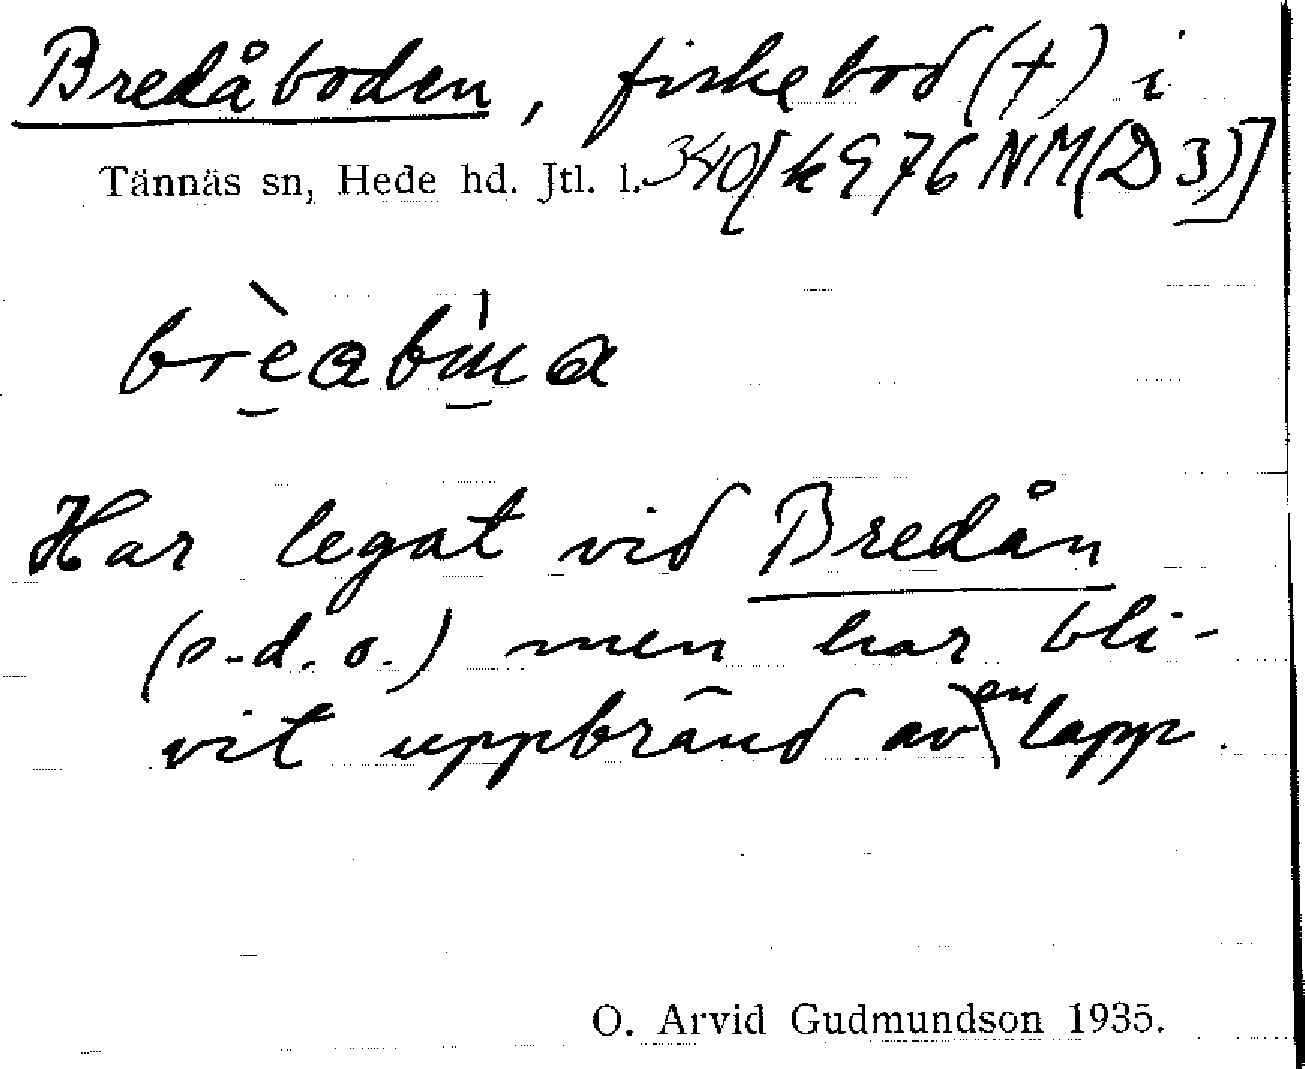 Bredåboden, fiskebod (†) i
Tännäs sn, Hede hd. Jtl. l. 340 [k 976 NM (D 3)]
Har legat vid Bredån
(s.d.o.) men har bli-
vit uppbränd av en lapp.
O. Arvid Gudmundson 1935.